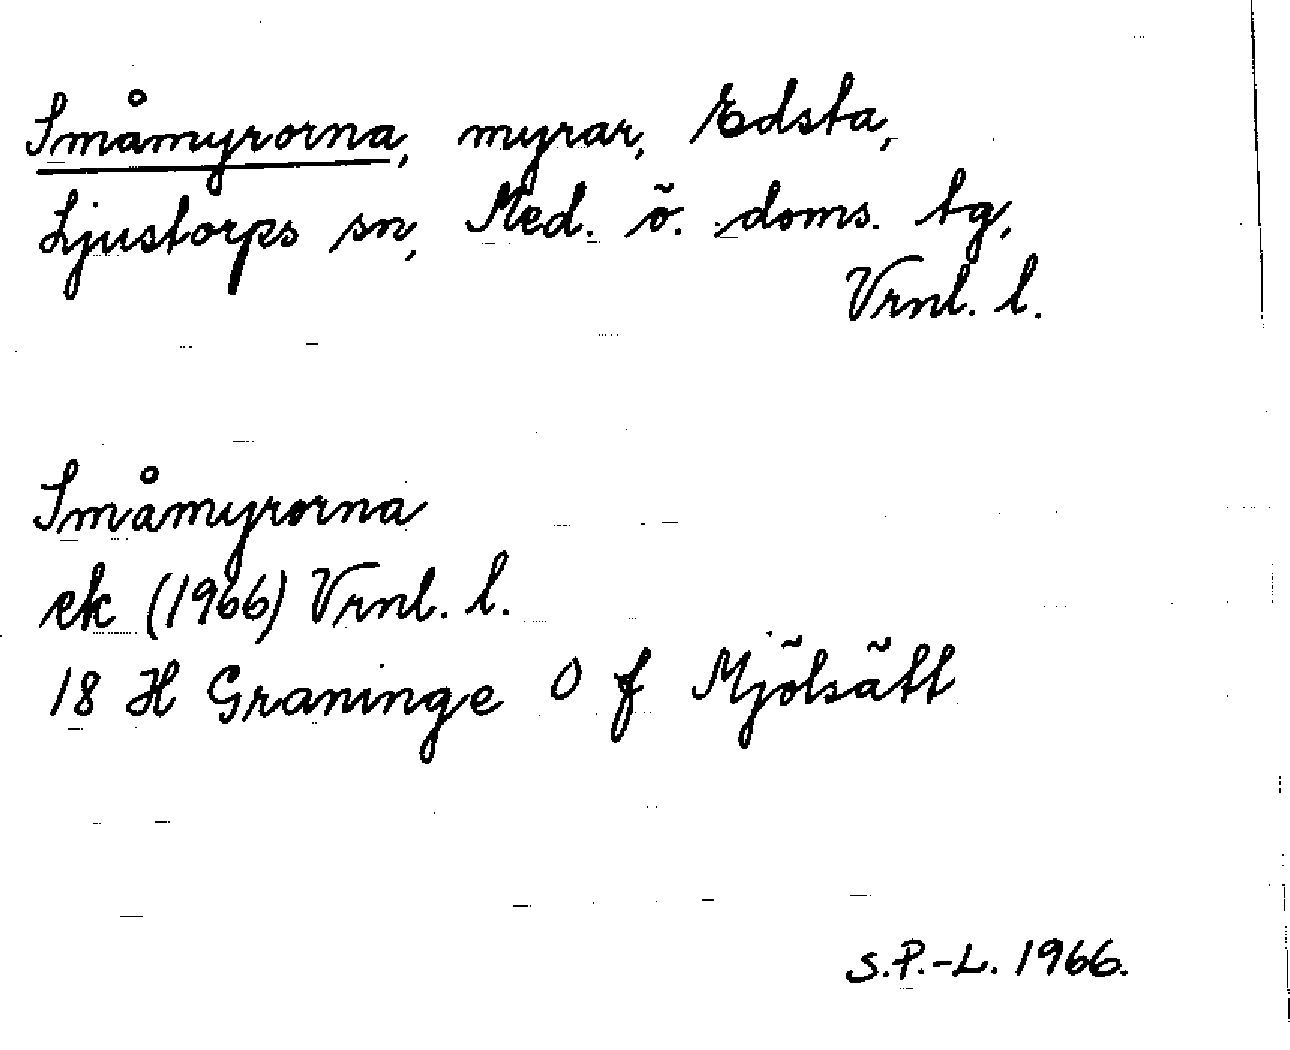 Småmyrorna, myrar, Edsta,
Ljustorps sn, Med. ö. doms. tg,
Vrnl. l.
Småmyrorna
ek (1966) Vrnl. l.
18 H Graninge O f Mjölsätt
S.P.-L. 1966.